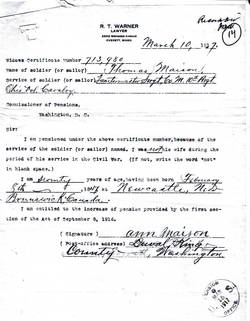 R. T. WARNER
LAWYER
EVERETT, WASH.
March 10, 1917.
Widows Certificate Number 713,980
Name of soldier (or sailor) Thomas Maison
Service of soldier (or sailor) Co. M, Regt.
Ohio Vol. Cavalry.
Commissioner of Pensions,
Washington, D. C.
Sir:
I am pensioned under the above certificate number, because of the
service of the (soldier or sailor) named. I was not his wife during the
period of his service in the Civil War. (If not, write the word "not"
in blank space.)
I am seventy years of age, having been born February
8th, at Newcastle, New
Brunswick Canada.
I am entitled to the increase of pension provided by the first section
of the Act of September 8, 1916.
(Signature) Ann Maison
(Post-office address) Duvall, King
County, Washington